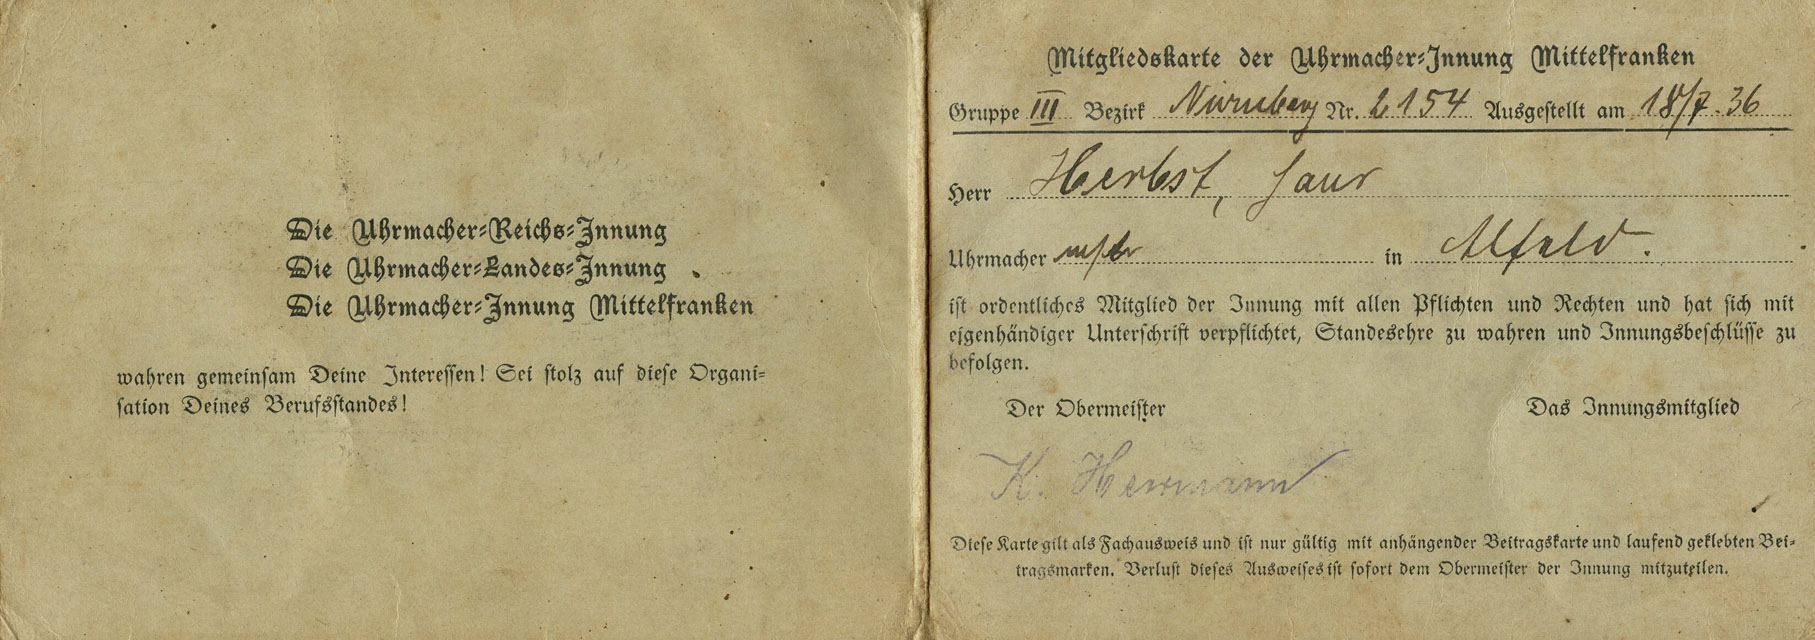 Die Uhrmacher-Reichs-Innung
Die Uhrmacher-Landes-Innung
Die Uhrmacher-Innung Mittelfranken
wahren gemeinsam Deine Interessen! Sei stolz auf diese Organi-
sation Deines Berufsstandes!
Mitgliedskarte der Uhrmacher-Innung Mittelfranken
Gruppe III Bezirk Nürnberg Nr. 2154 Ausgestellt am 18/7.36
Herr Herbst, Hans
Uhrmacher mstr in Alfeld.
ist ordentliches Mitglied der Innung mit allen Pflichten und Rechten und hat sich mit
eigenhändiger Unterschrift verpflichtet, Standesehre zu wahren und Innungsbeschlüsse zu
befolgen.
Der Obermeister Das Innungsmitglied
K. Herrmann
Diese Karte gilt als Fachausweis und ist nur gültig mit anhängender Beitragskarte und laufend geklebten Bei-
tragsmarken. Verlust dieses Ausweises ist sofort dem Obermeister der Innung mitzuteilen.